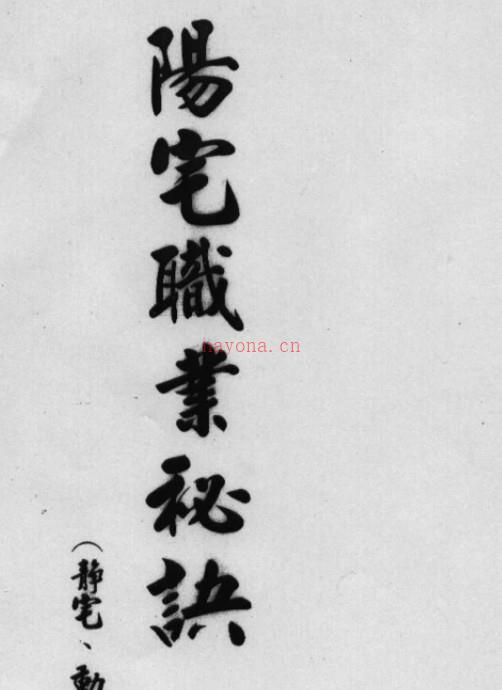 陽宅職業秘訣
(靜宅、動
nayona.cn